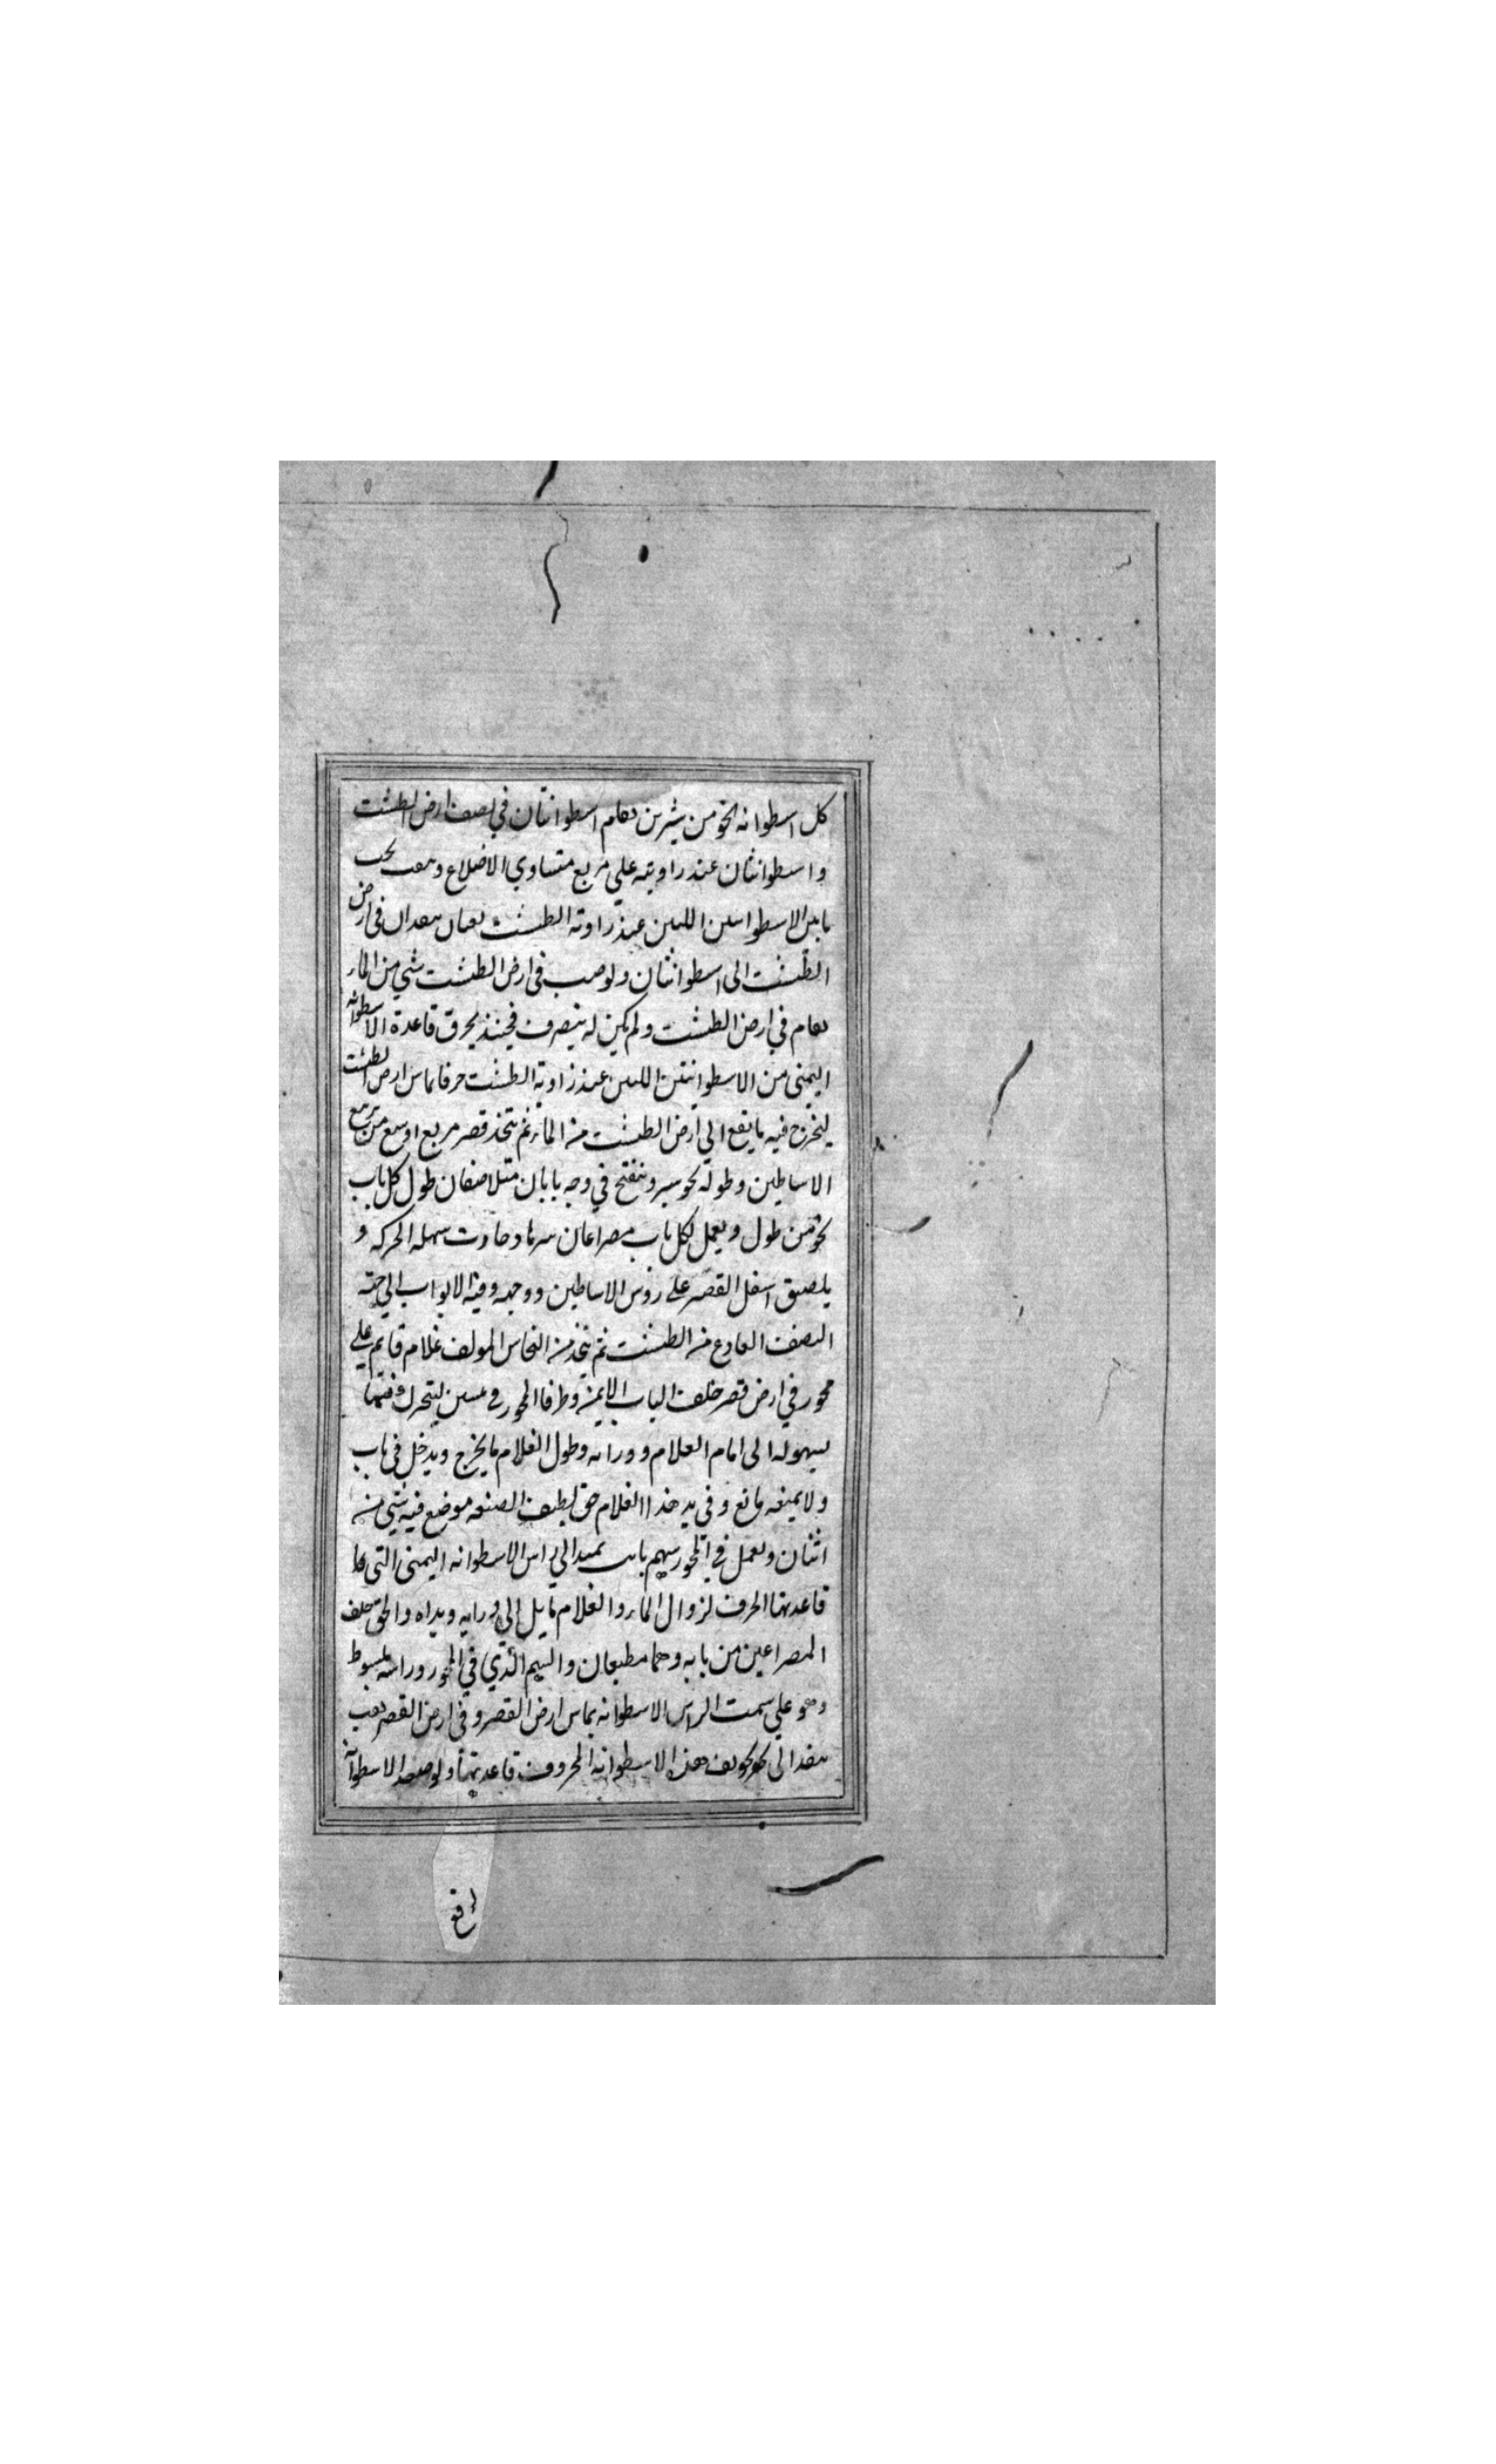 كل اسطوانه نحو من شبرين تقام اسطوانتان في نصف ارض الطشت
واسطوانتان عند زاويته علي مربع متساوي الاضلاع وثقب تحت
الاسطوانتين اللتين عند زاوية الطشت في ارض
الطشت الى اسطوانتان ولو صب في ارض الطشت شي من الماء
لقام في ارض الطشت ولم يكن له منصرف فحينئذ يحرق قاعدة الاسطوانه
اليمنى من الاسطوانتين اللتين عند زاوية الطشت حرفا يماس ارض الطشت
ليخرج فيه ما يقع الي ارض الطشت من الماء ثم يتخذ قصر مربع اوسع من تربيع
الاساطين وطوله نحو شبر ويفتح في وجه بابان متلاصقان طول كل باب
نحو من طول ويعمل لكل باب مصراعان سهله الحركه و
يلصق اسفل القصر على روس الاساطين ووجهه وفيه الابواب الي جهة
النصف الفارغ من الطشت ثم يتخذ من النحاس المولف غلام قايم علي
محور في ارض قصر خلف الباب الايمن وطرفا المحور في ليتحرك فيهما
بسهوله الى امام الغلام وورائه وطول الغلام ما يخرج ويدخل في باب
ولا يمنعه مانع وفي يد هذا الغلام حق لطيف الصنعه موضع فيه شي من
اشنان ويعمل في المحور سهم ثابت يمتد الي راس الاسطوانه اليمنى التي
قاعدتها الحرف لزوال الماء والغلام مايل الي ورايه ويداه والحق خلف
المصراعين من بابه وهما مطبقان والسهم الذي في المحور وراسه مبسوط
وهو علي سمت الراس الاسطوانه يماس ارض القصر وفي ارض القصر ثقب
ينفذ الى تجويف هذه الاسطوانه المحروف قاعدتها الاسطوانه